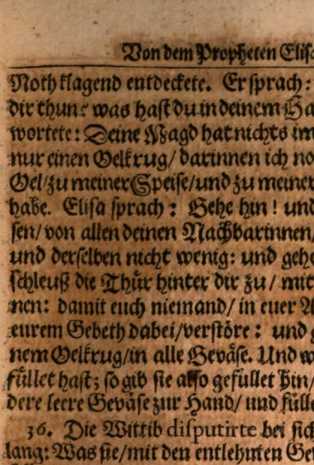 Von dem Propheten Elisa
Noth klagend entdeckete. Er sprach:
dir thun: was hast du in deinem Ha
wortete: Deine Magd hat nichts im
nur einen Oelkrug/ darinnen ich no
Oel/ zu meiner Speise/ und zu meiner
habe. Elisa sprach: Gehe hin! und
sen/ von allen deinen Nachbarinnen/
und derselben nicht wenig: und gehe
schleuß die Thür hinter dir zu/ mit
nen: damit euch niemand/ in euer A
eurem Gebeth dabei/ verstöre: und g
nem Oelkrug/ in alle Geväse. Und w
füllet hast; so gib sie also gefüllet hin/
dere leere Geväse zur Hand/ und fülle
36. Die Wittib disputirte bei sich
lang: Was sie/ mit den entlehnten Ge